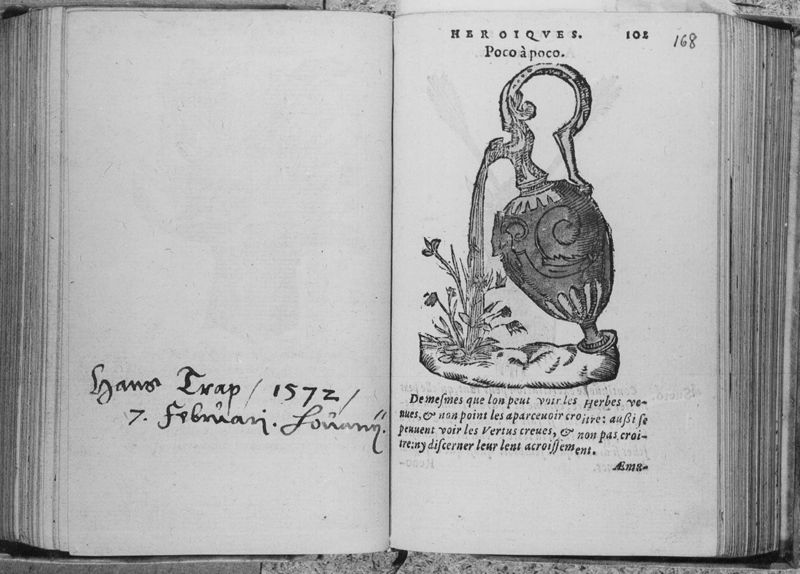 Hans Trap / 1572 /
7. Februarij. Louanij.
HEROIQVES. 102
168
Poco à poco.
De mesmes que lon peut voir les Herbes ve-
nues, & non point les aparceuoir croitre: aussi se
peuuent voir les Vertus creues, & non pas croi-
tre: ny discerner leur lent acroissement.
Æma-